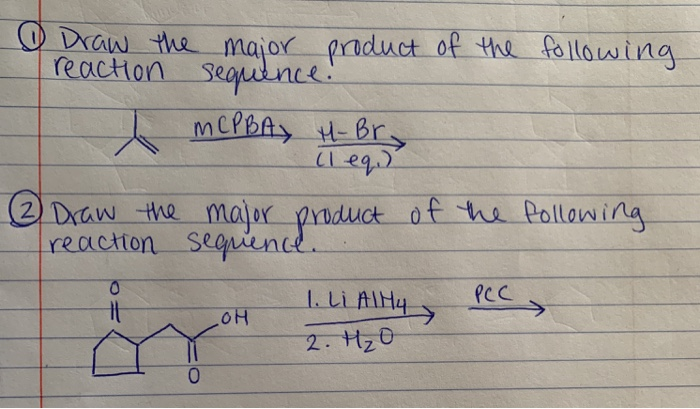 ① Draw the major product of the following
reaction sequence.
mCPBA H-Br
(1 eq.)
② Draw the major product of the following
reaction sequence.
O
OH
O
1. LiAlH4
2. H2O
PCC